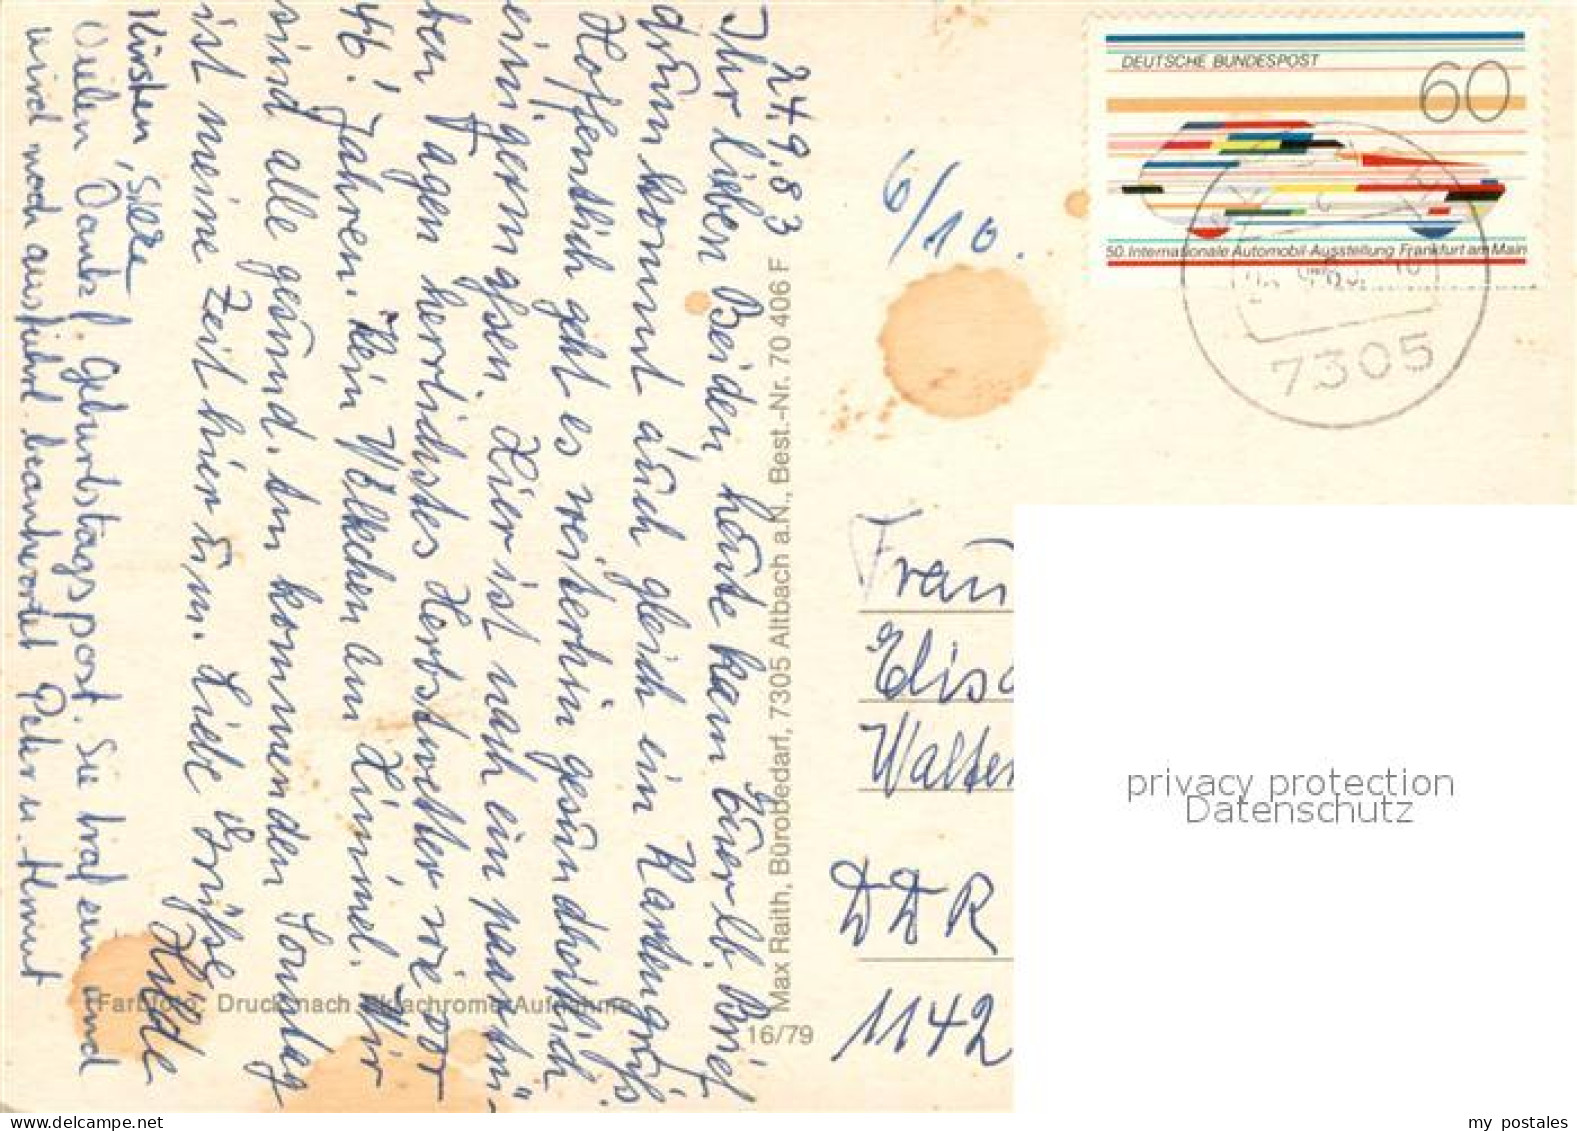 24.9.83
Ihr lieben Beiden, heute kam Euer lb. Brief
drum kommt auch gleich ein Kartengruß.
Hoffentlich geht es weiterhin gesundheitlich
einigermaßen. Hier ist nach ein paar trü-
ben Tagen herrlichstes Herbstwetter wie vor
46 Jahren. Kein Wölkchen am Himmel. Wir
sind alle gesund. Am kommenden Sonntag
ist meine Zeit hier um. Liebe Grüße
Hilde
Kirsten, Silke
Vielen Dank f. Geburtstagspost. Sie traf ein und
wird noch ausführl. beantwortet Peter u. Helmut
Farbfoto: Druck nach Ektachrome-Aufnahme
Max Raith, Bürobedarf, 7305 Altbach a.N., Best.-Nr. 70 406 F
16/79
DEUTSCHE BUNDESPOST
60
50. Internationale Automobil-Ausstellung Frankfurt am Main
7305
6/10.
Frau
Elisa
Walter
DDR
1142
privacy protection
Datenschutz
my postales